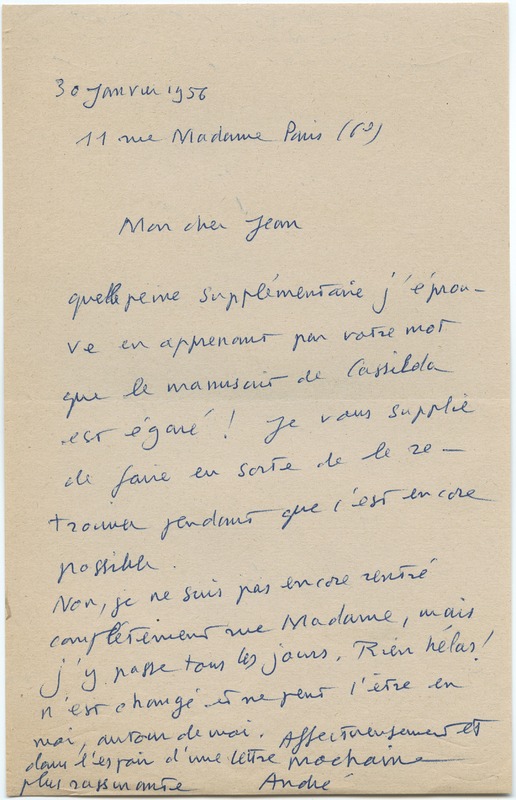 30 Janvier 1956
11 rue Madame Paris (6e)
Mon cher Jean
quelle peine supplémentaire j'éprou-
ve en apprenant par votre mot
que le manuscrit de Cassilda
est égaré ! Je vous supplie
de faire en sorte de le re-
trouver pendant que c'est encore
possible.
Non, je ne suis pas encore rentré
complètement rue Madame, mais
j'y passe tous les jours. Rien hélas !
n'est changé et ne peut l'être en
moi, autour de moi. Affectueusement et
dans l'espoir d'une lettre prochaine
plus rassurante André